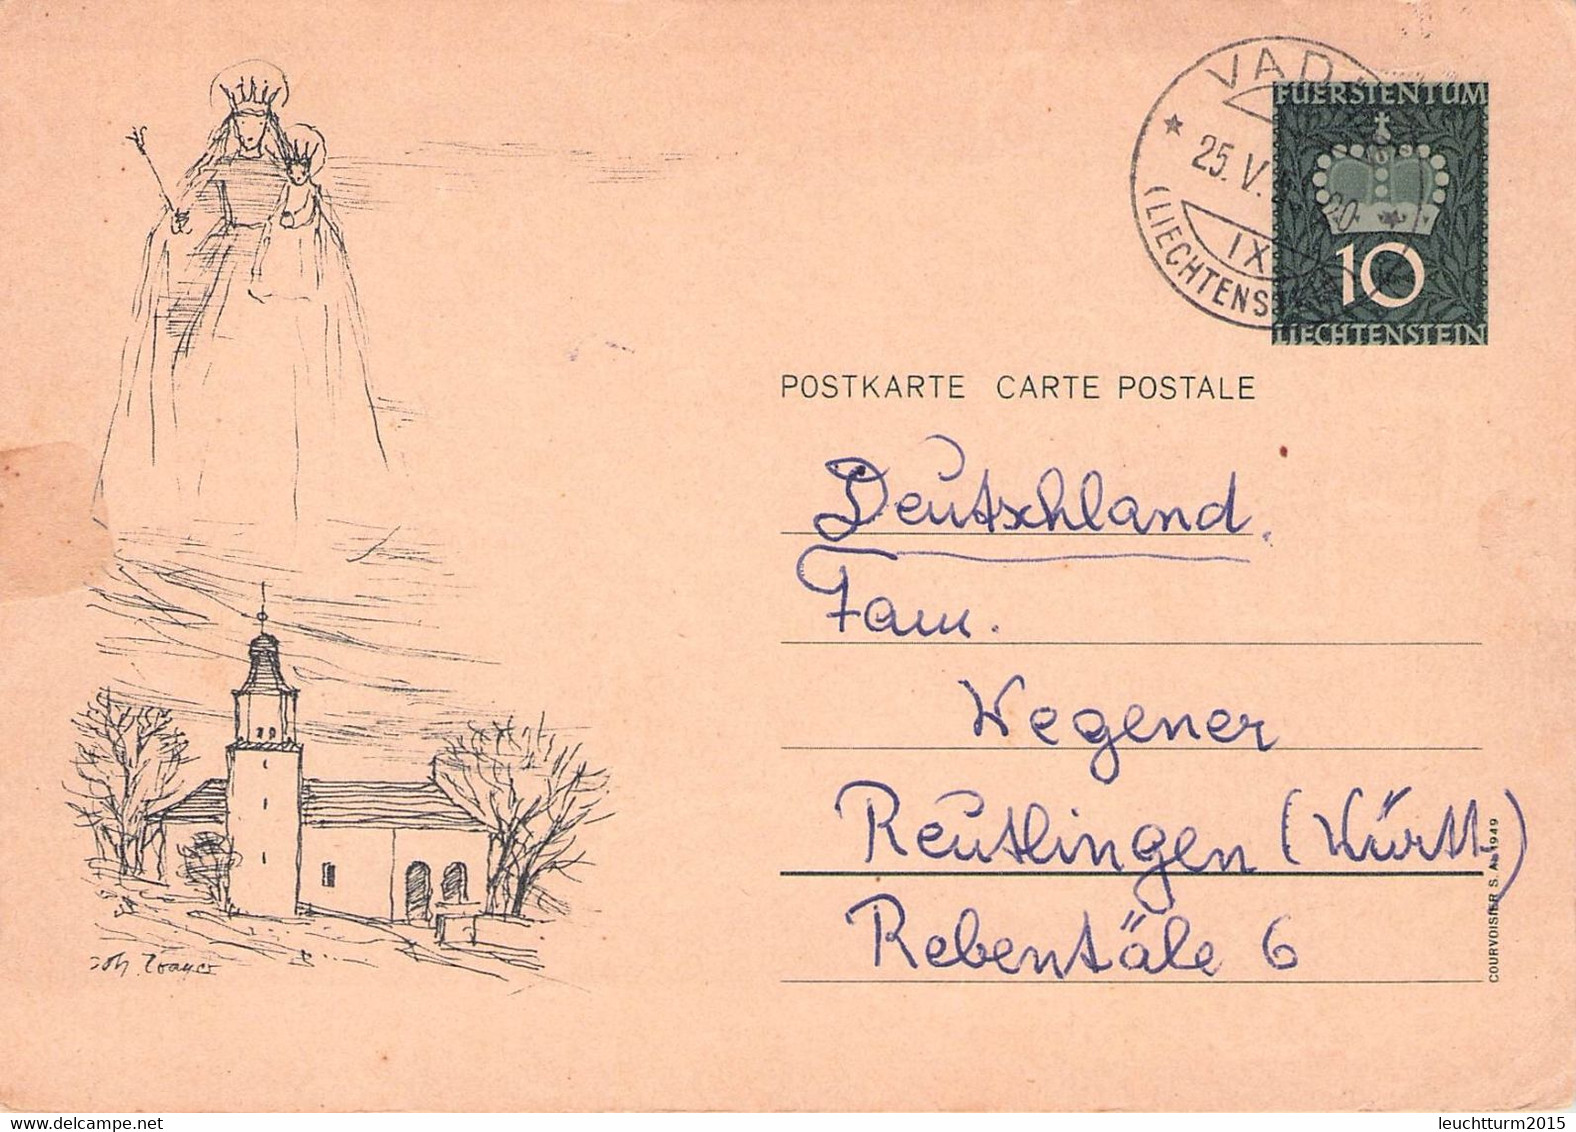 VAD
25. V.
20
IX
(LIECHTENS
FUERSTENTUM
10
LIECHTENSTEIN
POSTKARTE CARTE POSTALE
Deutschland.
Fam.
Wegener
Reutlingen (Württ.)
Rebentäle 6
COURVOISIER S. A. 1949
Delcampe.net
leuchtturm2015